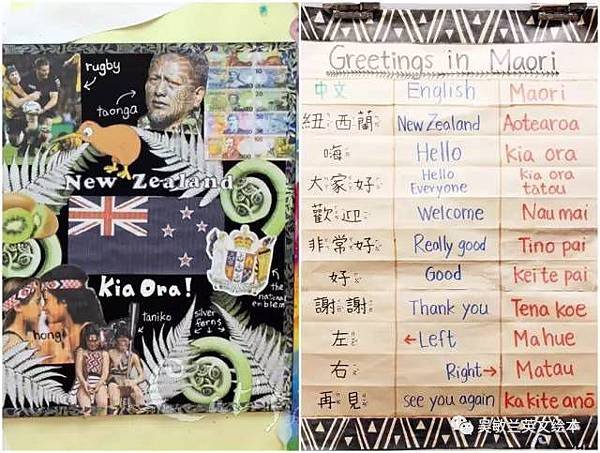 rugby
taonga
New Zealand
Kia Ora!
the national emblem
hongi
taniko
silver ferns
Greetings in Maori
中文 English Maori
紐西蘭 New Zealand Aotearoa
嗨 Hello kia ora
大家好 Hello Everyone kia ora tatou
歡迎 Welcome Nau mai
非常好 Really good Tino pai
好 Good kei te pai
謝謝 Thank you Tena koe
左 ←Left Mahue
右 Right→ Matau
再見 see you again ka kite anō
吴敏兰英文绘本